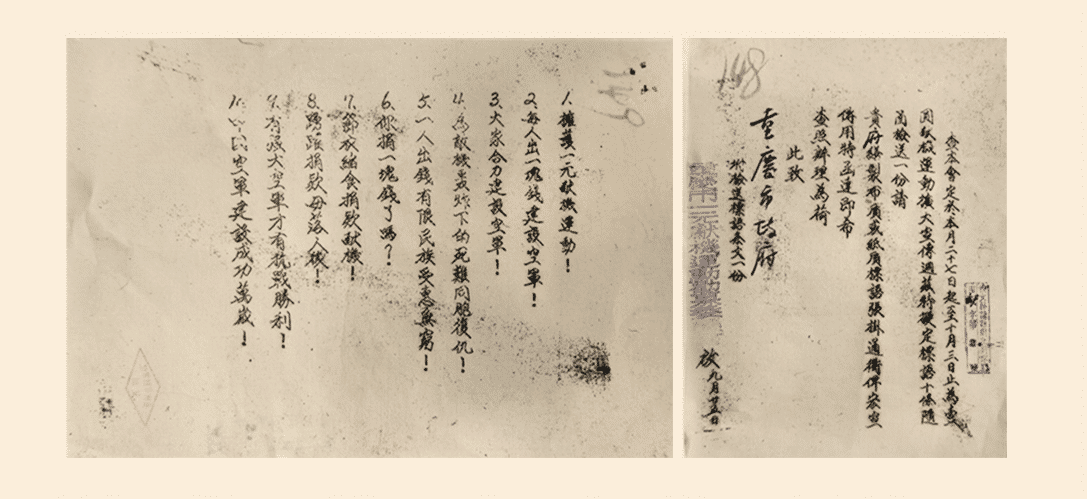 148
查本會定於本月二十七日起至十月三日止為
獻機運動擴大宣傳週茲特擬定標語十條隨
函檢送一份請
貴府繕製布質或紙質標語張掛通衢俾資宣
傳用特函達即希
查照辦理為荷
此致
重慶市政府
附檢送標語全文一份
一元獻機運動
啟九月廿五日
149
1、擁護一元獻機運動！
2、每人出一塊錢建設空軍！
3、大家合力建設空軍！
4、為敵機轟炸下的死難同胞復仇！
5、一人出錢有限民族受惠無窮！
6、你捐一塊錢了嗎？
7、節衣縮食捐款獻機！
8、踴躍捐款毋落人後！
9、有強大空軍才有抗戰勝利！
10、空軍建設成功萬歲！